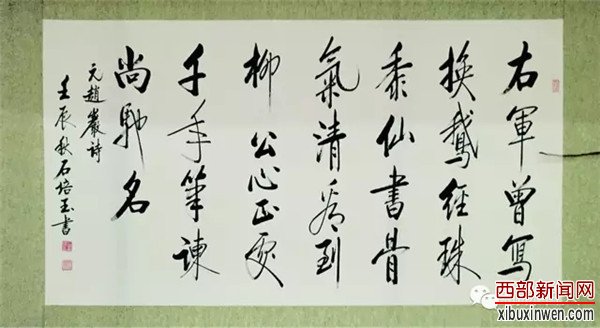 右軍曾寫
換鵝經珠
黍仙書骨
氣清看到
柳公心正處
千年筆諫
尚馳名
元趙巖詩
壬辰秋石培玉書
西部新闻网
xibuxinwen.com